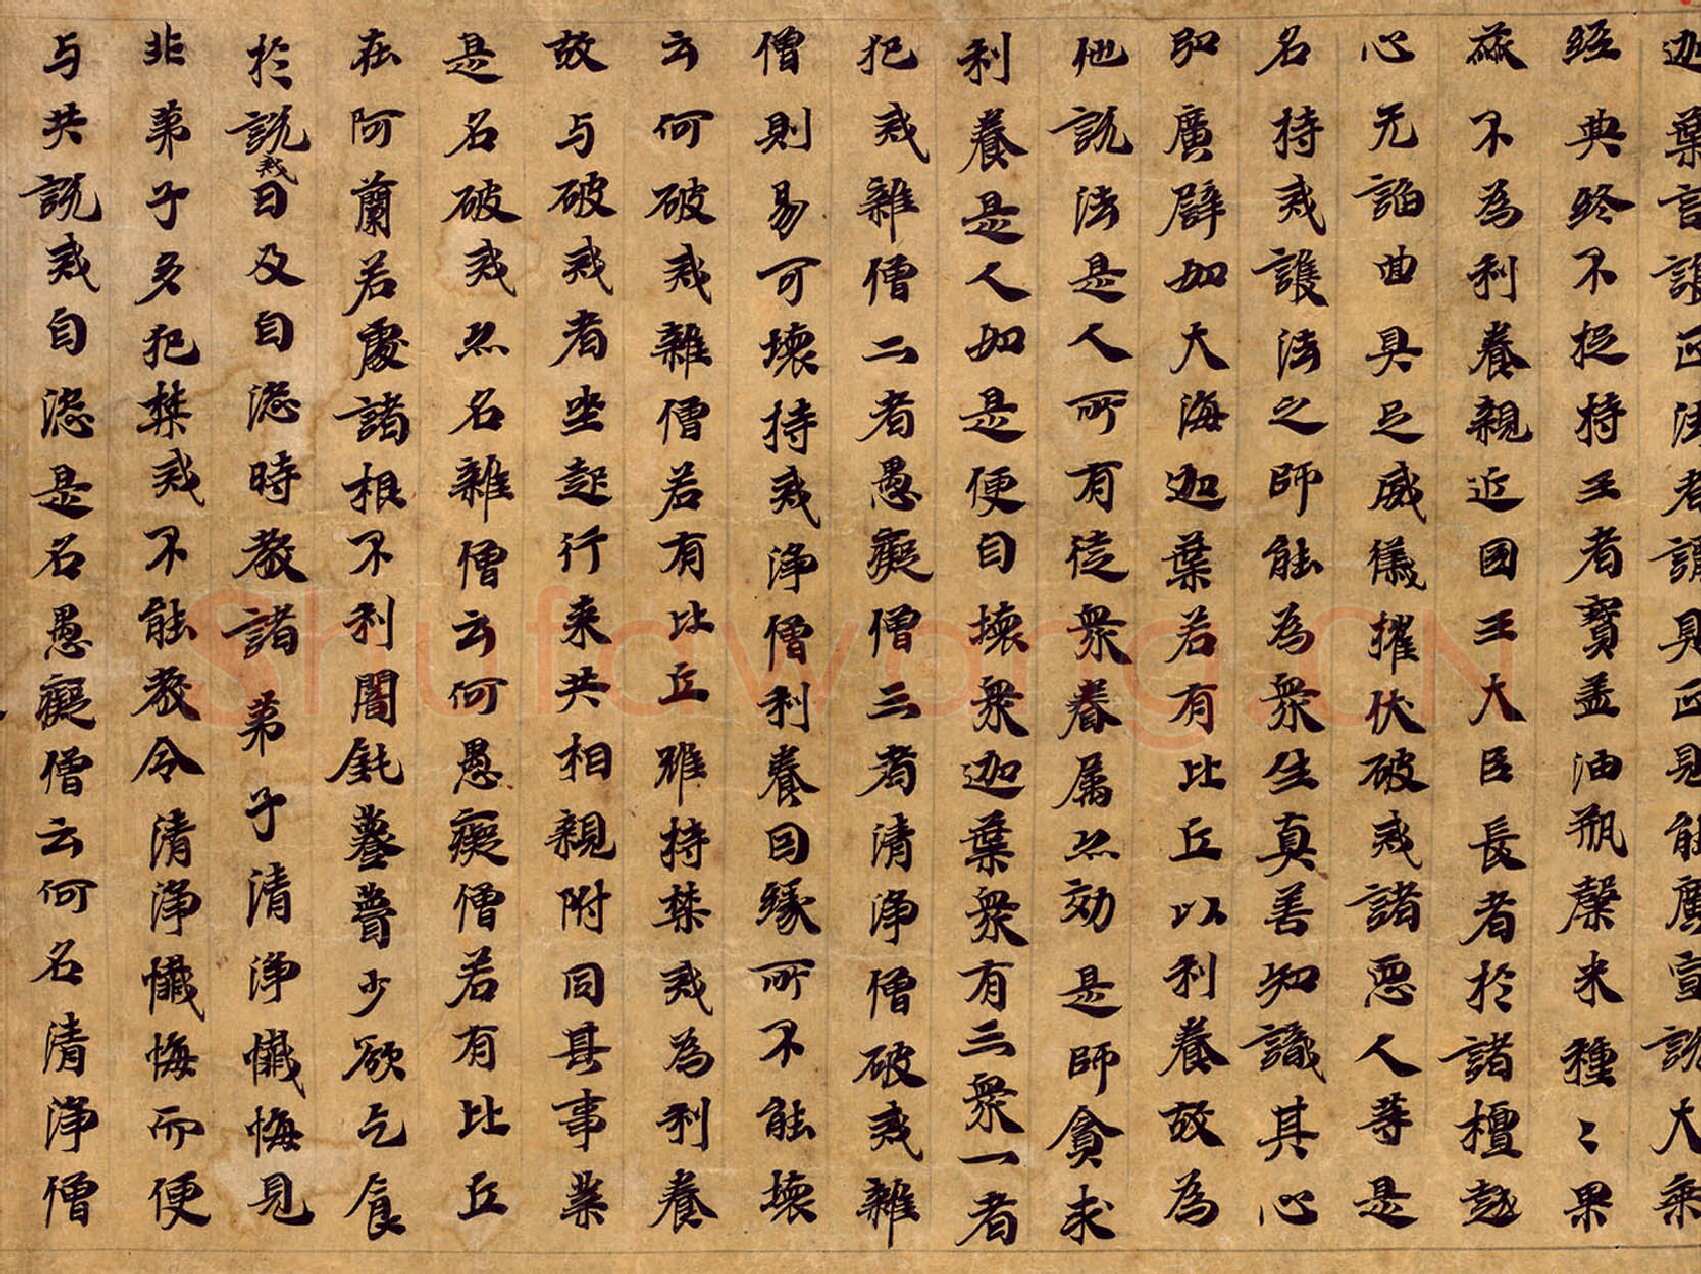 迦葉言護正法者謂具正見能廣宣說大乘
經典終不捉持王者寶盖油瓶穈米種〻果
蓏不為利養親近國王大臣長者於諸檀越
心无諂曲具足威儀摧伏破戒諸惡人等是
名持戒護法之師能為衆生真善知識其心
弘廣譬如大海迦葉若有比丘以利養故為
他說法是人所有徒衆眷属亦効是師貪求
利養是人如是便自壞衆迦葉衆有三衆一者
犯戒雜僧二者愚癡僧三者清淨僧破戒雜
僧則易可壞持戒淨僧利養因緣所不能壞
云何破戒雜僧若有比丘雖持禁戒為利養
故与破戒者坐起行来共相親附同其事業
是名破戒亦名雜僧云何愚癡僧若有比丘
在阿蘭若處諸根不利闇鈍𦿏瞢少欲乞食
於說戒日及自恣時教諸弟子清淨懺悔見
非弟子多犯禁戒不能教令清淨懺悔而便
与共說戒自恣是名愚癡僧云何名清淨僧
Shufawang.CN